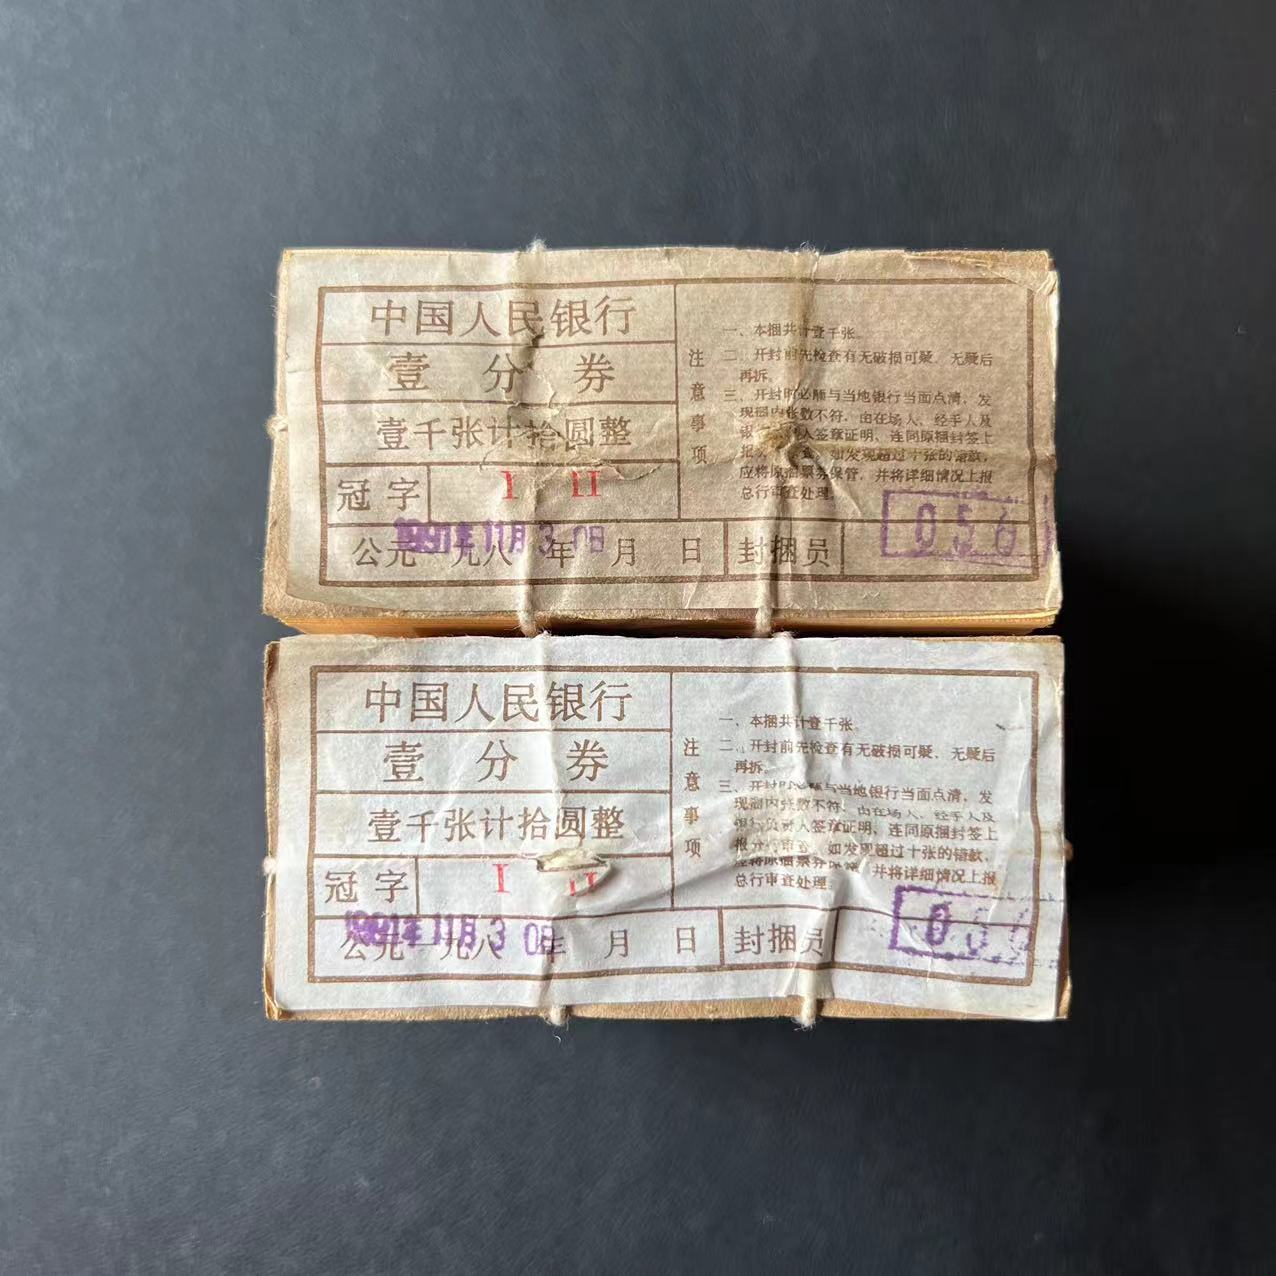 中国人民银行
壹分券
壹千张计拾圆整
冠字 I II
公元一九八 年 月 日
1991年11月30日
封捆员 056
注意事项
一、本捆共计壹千张。
二、开封前先检查有无破损可疑、无疑后
再拆。
三、开封时必须与当地银行当面点清，发
现捆内张数不符，由在场人、经手人及
银行 人签章证明，连同原捆封签上
报 查。如发现超过十张的错款，
应将原捆票券保管，并将详细情况上报
总行审查处理。
中国人民银行
壹分券
壹千张计拾圆整
冠字 I II
公元一九八 年 月 日
1991年11月30日
封捆员 05
注意事项
一、本捆共计壹千张。
二、开封前先检查有无破损可疑、无疑后
再拆。
三、开封时必须与当地银行当面点清，发
现捆内张数不符，由在场人、经手人及
银行负责人签章证明，连同原捆封签上
报分行审查。如发现超过十张的错款，
应将原捆票券保管，并将详细情况上报
总行审查处理。